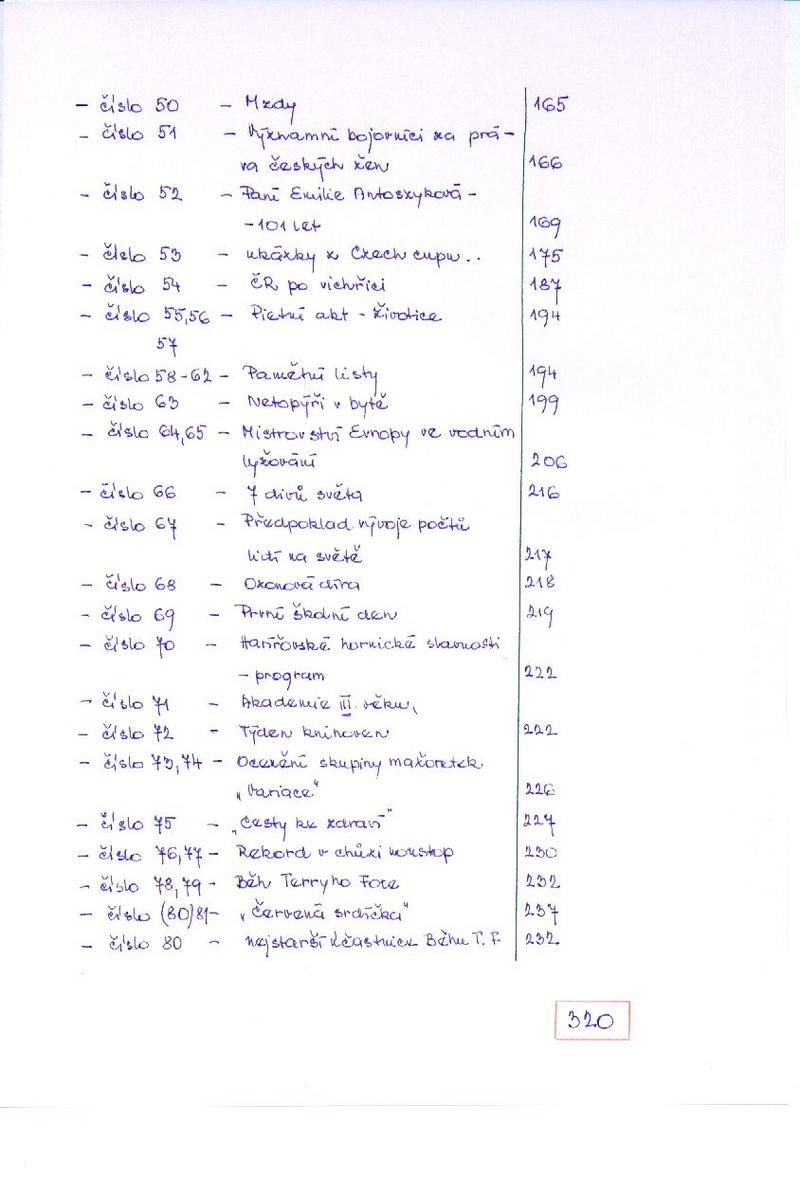 - číslo 50 - Mzdy 165
- číslo 51 - Významní bojovníci za prá-
va českých žen 166
- číslo 52 - Paní Emilie Antoszyková -
- 101 let 169
- číslo 53 - ukázky z Czech cupu.. 175
- číslo 54 - ČR po vichřici 187
- číslo 55,56 - Pietní akt - Životice 194
57
- číslo 58-62 - Pamětní listy 194
- číslo 63 - Netopýři v bytě 199
- číslo 64,65 - Mistrovství Evropy ve vodním
lyžování 206
- číslo 66 - 7 divů světa 216
- číslo 67 - Předpoklad vývoje počtů
lidí na světě 217
- číslo 68 - Ozonová díra 218
- číslo 69 - První školní den 219
- číslo 70 - Havířovské hornické slavnosti
- program 222
- číslo 71 - Akademie III. věku,
- číslo 72 - Týden knihoven 222
- číslo 73,74 - Ocenění skupiny mažoretek
„Variace" 226
- číslo 75 - „Cesty ke zdraví" 227
- číslo 76,77 - Rekord v chůzi nonstop 230
- číslo 78,79 - Běh Terryho Foxe 232
- číslo (80)81 - „Červená srdíčka" 237
- číslo 80 - nejstarší účastnice Běhu T. F. 232
320